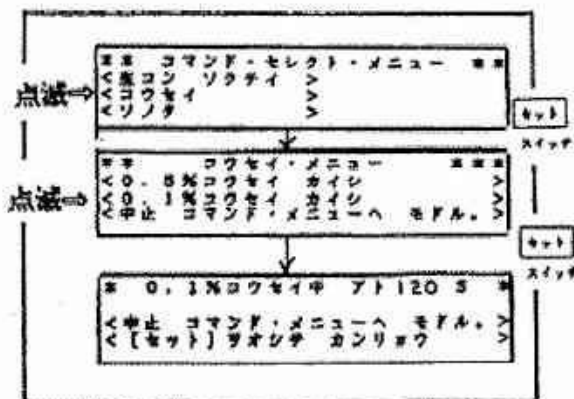 ** コマンド・セレクト・メニュー **
<生コン ソクテイ >
点滅⇒ <コウセイ >
<ソノタ >
セット
スイッチ
** コウセイ・メニュー ***
<0.5%コウセイ カイシ >
点滅⇒ <0.1%コウセイ カイシ >
<中止 コマンド・メニューヘ モドル。>
セット
スイッチ
* 0.1%コウセイ中 アト120S *
<中止 コマンド・メニューヘ モドル。>
<[セット]ヲオシテ カンリョウ >